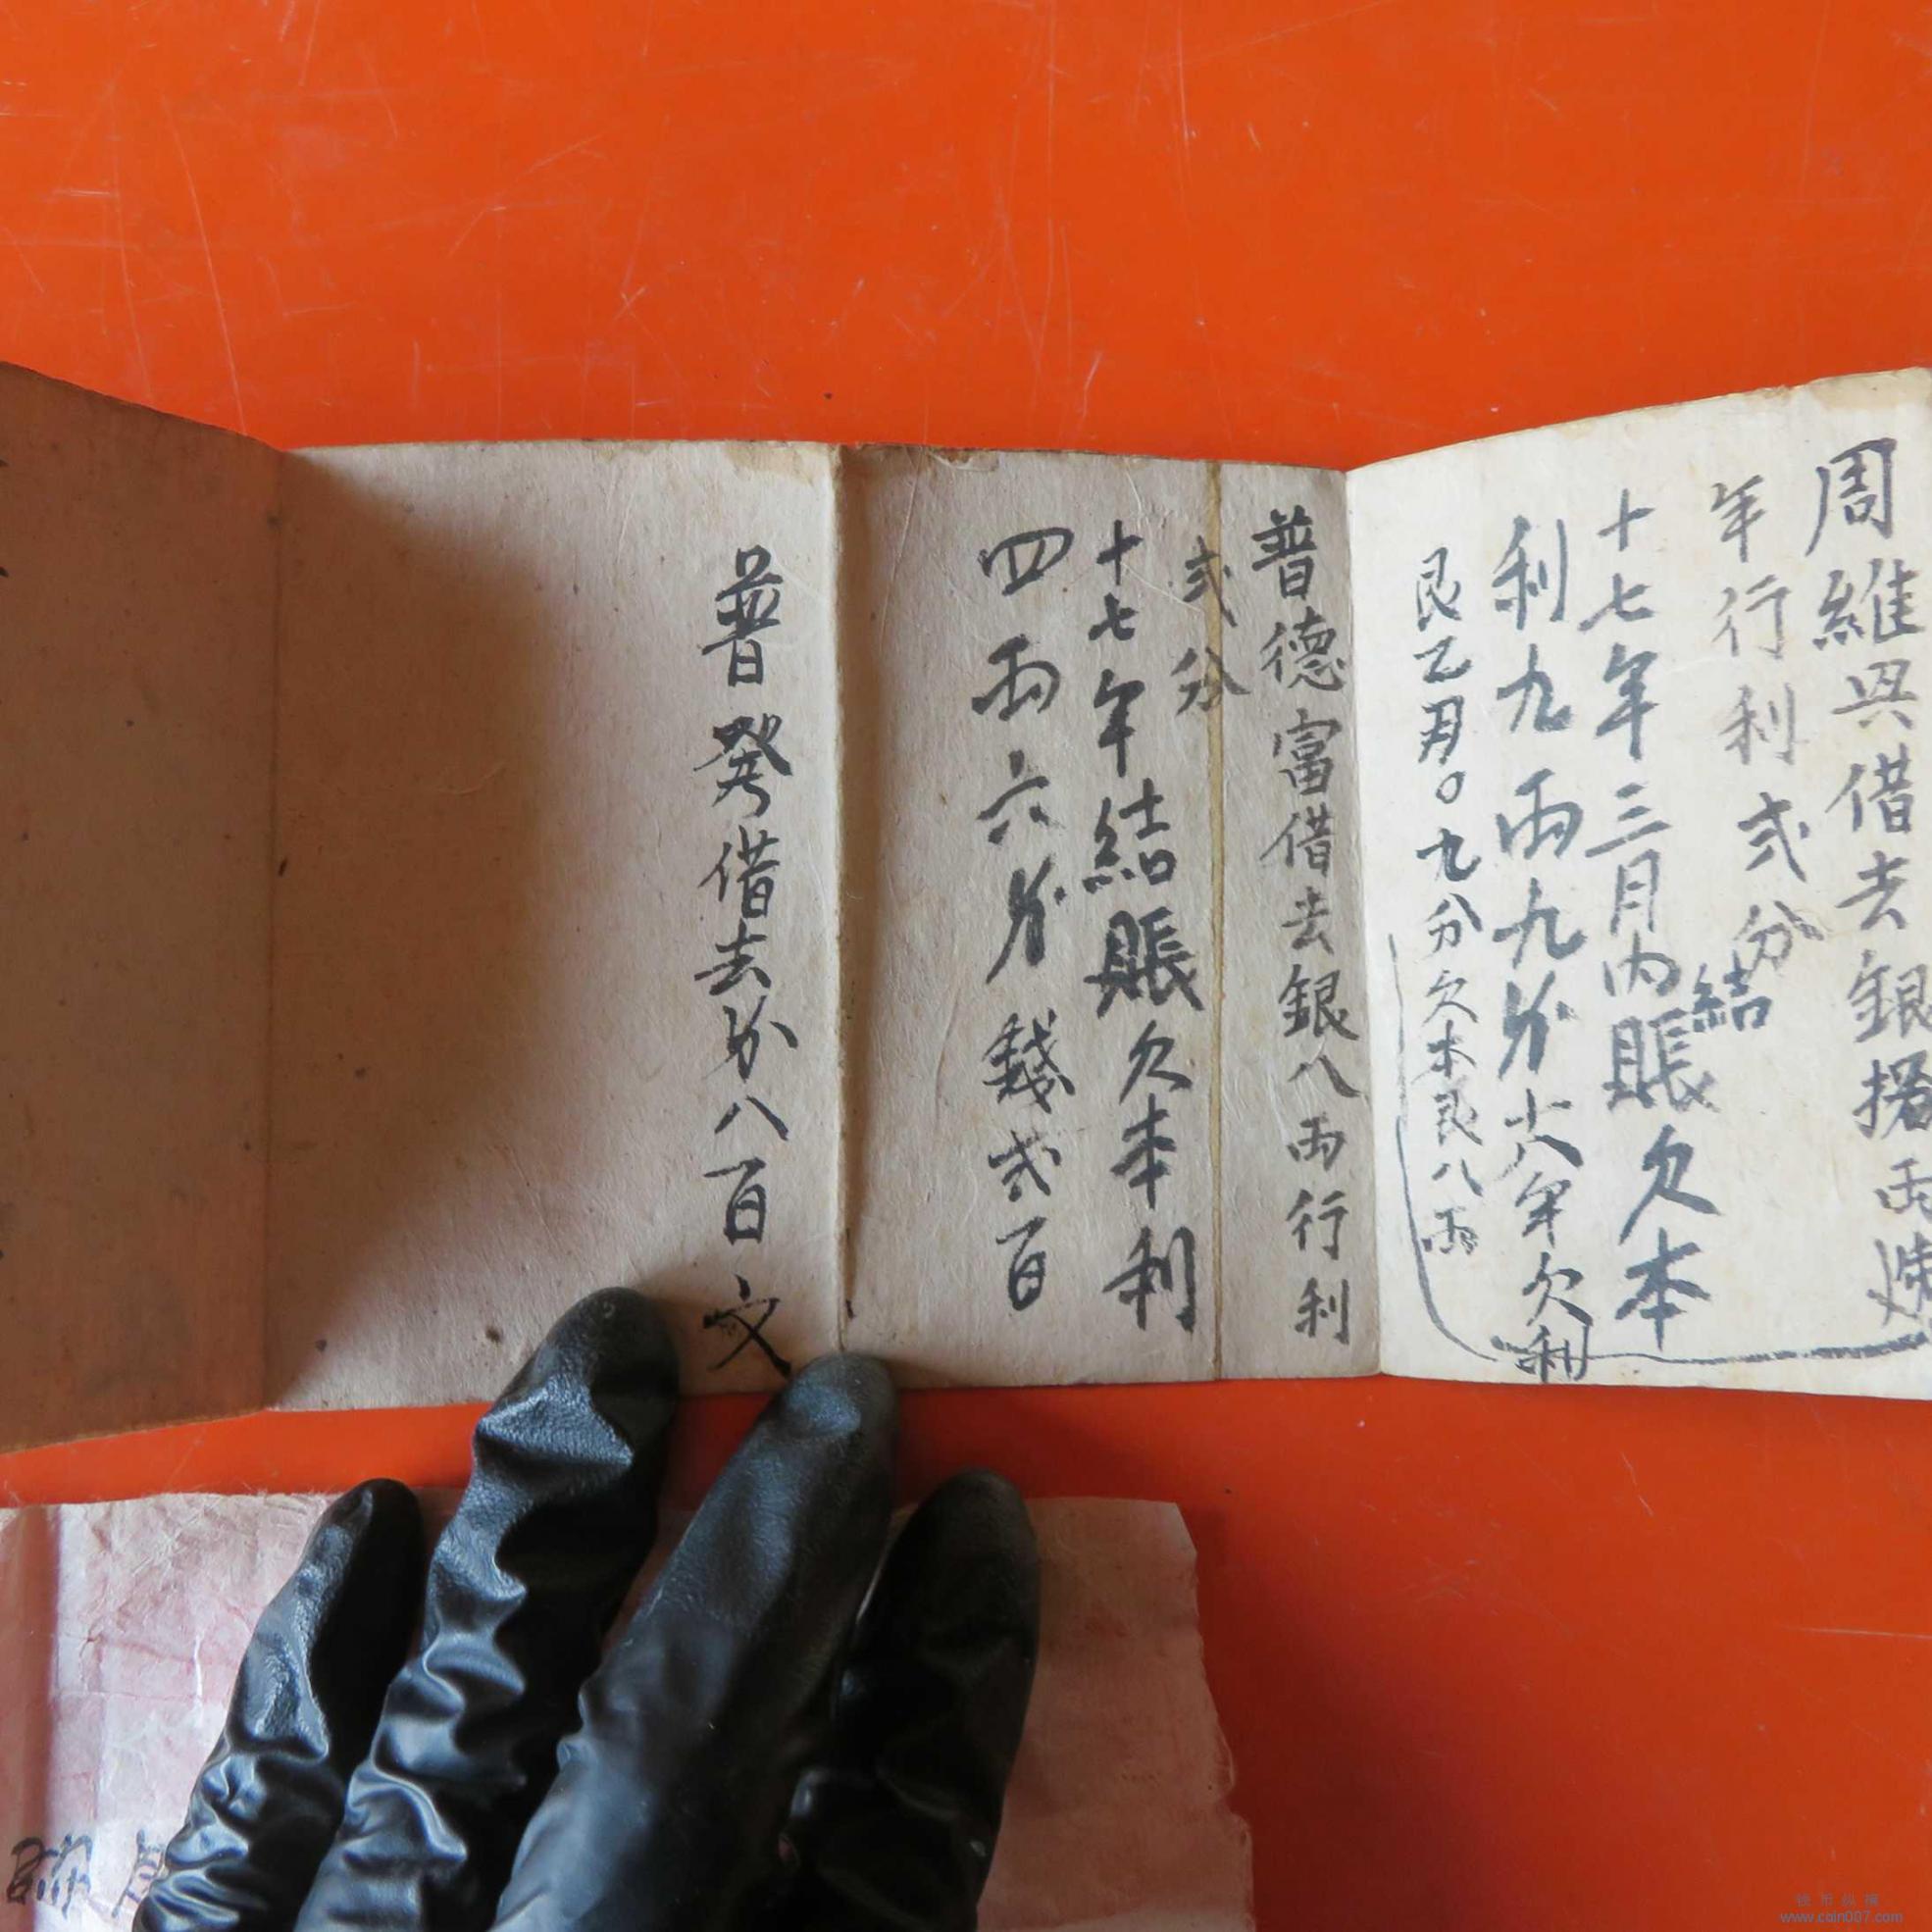 周維興借去銀 兩
年行利弍分
十七年三月內結賬欠本
利九兩九分十八年欠利
艮乙 九分欠本艮八兩
普德富借去銀八兩行利
弍分
十七年結賬欠本利
四兩六分錢弍百
普發借去 八百文
www.coin007.com